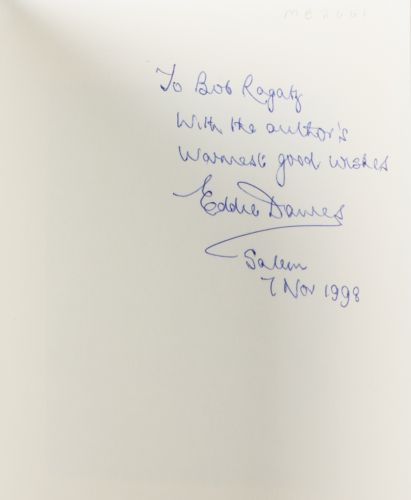 To Bob Ragatz
With the author's
Warmest good wishes
Eddie Davies
Salem
7 Nov 1998